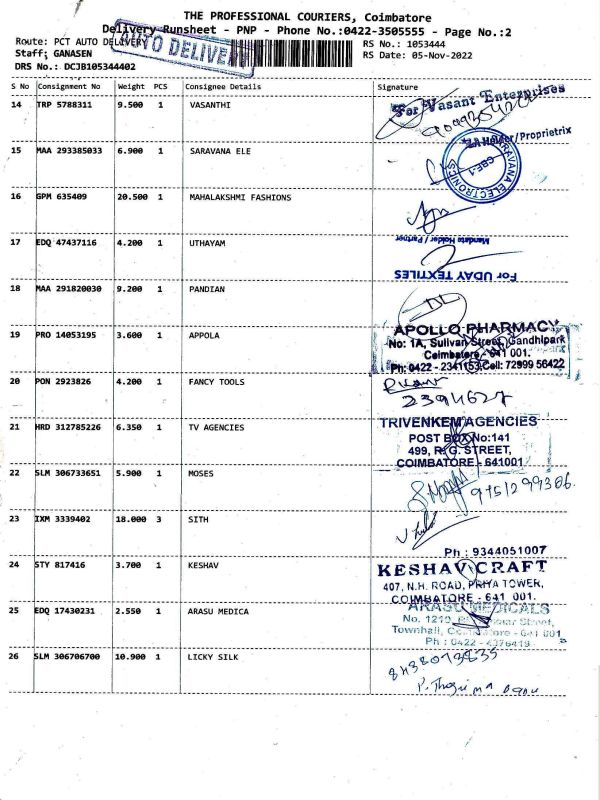 THE PROFESSIONAL COURIERS, Coimbatore
Delivery Runsheet - PNP - Phone No.:0422-3505555 - Page No.:2
Route: PCT AUTO DELIVERY
AUTO DELIVERY
RS No.: 1053444
Staff; GANASEN
RS Date: 05-Nov-2022
DRS No.: DCJB105344402
S No Consignment No Weight PCS Consignee Details Signature
14 TRP 5788311 9.500 1 VASANTHI
For Vasant Enterprises
P.A Holder/Proprietrix
15 MAA 293385033 6.900 1 SARAVANA ELE
SARAVANA ELECTRONICS
CBE-1
16 GPM 635409 20.500 1 MAHALAKSHMI FASHIONS
17 EDQ 47437116 4.200 1 UTHAYAM
Mandate Holder / Partner
For UDAY TEXTILES
18 MAA 291820030 9.200 1 PANDIAN
19 PRO 14053195 3.600 1 APPOLA
APOLLO PHARMACY
No: 1A, Sullivan Street, Gandhipark
Coimbatore - 641 001.
Ph: 0422 - 2341153 Cell: 72999 56422
20 PON 2923826 4.200 1 FANCY TOOLS
2394627
21 HRD 312785226 6.350 1 TV AGENCIES
TRIVENKEM AGENCIES
POST BOX No:141
499, R.G. STREET,
COIMBATORE - 641001
22 SLM 306733651 5.900 1 MOSES
9751299306
23 IXM 3339402 18.000 3 SITH
24 STY 817416 3.700 1 KESHAV
Ph : 9344051007
KESHAV CRAFT
407, N.H. ROAD, PRIYA TOWER,
COIMBATORE - 641 001.
25 EDQ 17430231 2.550 1 ARASU MEDICA
ARASU MEDICALS
No. 1210, Street,
Townhall, Coimbatore - 641 001
Ph : 0422 - 4376419
26 SLM 306706700 10.900 1 LICKY SILK
8438073835